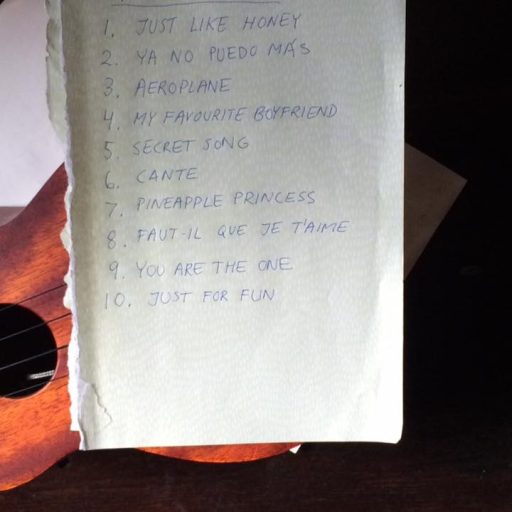 1. JUST LIKE HONEY
2. YA NO PUEDO MÁS
3. AEROPLANE
4. MY FAVOURITE BOYFRIEND
5. SECRET SONG
6. CANTE
7. PINEAPPLE PRINCESS
8. FAUT-IL QUE JE T'AIME
9. YOU ARE THE ONE
10. JUST FOR FUN